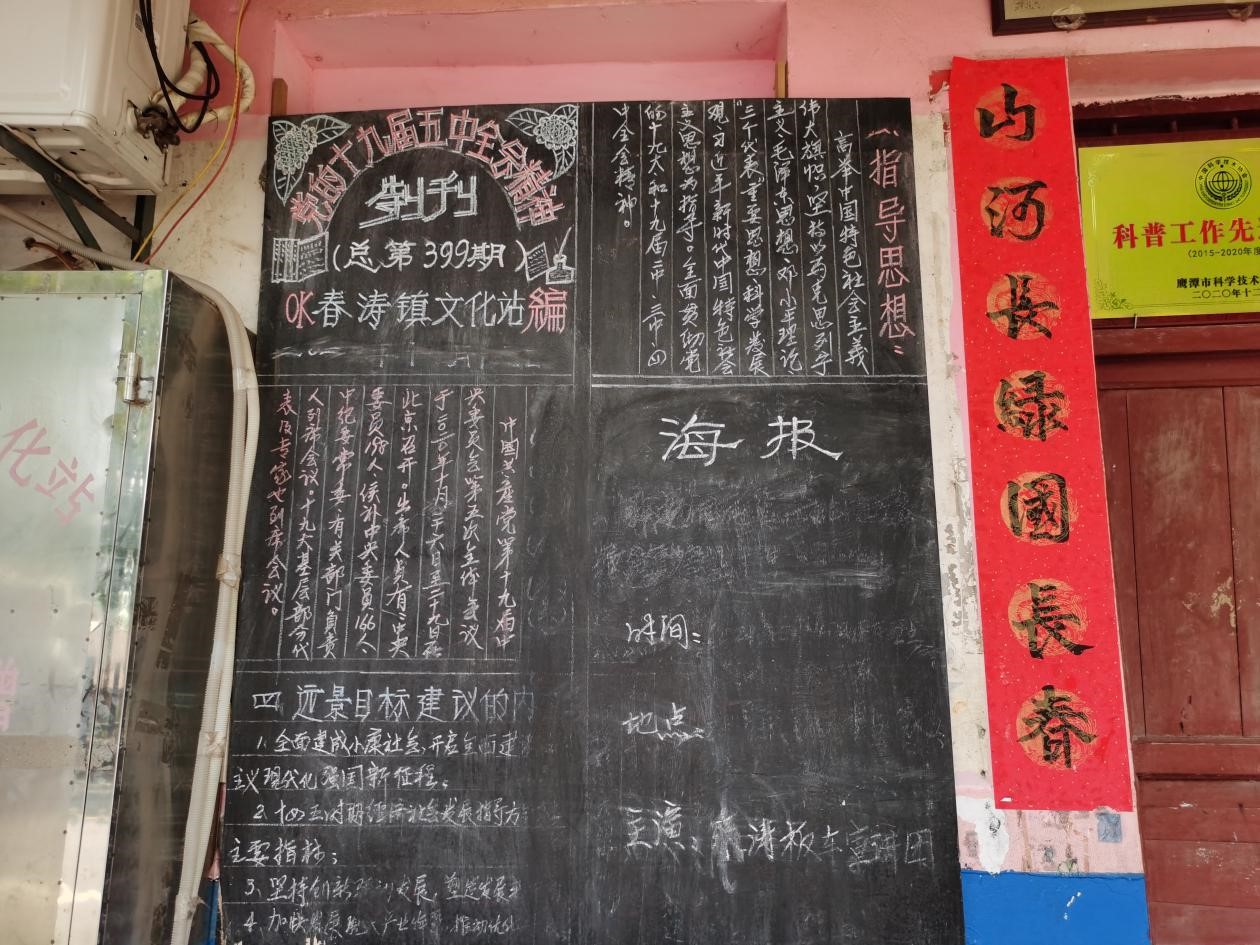 党的十九届五中全会精神
制刊
(总第399期)
OK春涛镇文化站编
一指导思想:
高举中国特色社会主义
伟大旗帜.坚持以马克思列宁
主义毛泽东思想.邓小平理论
"三个代表"重要思想科学发展
观.习近平新时代中国特色社会
主义思想为指导。全面贯彻党
的十九大和十九届二中.三中.四
中全会精神。
中国共产党第十九届中
央委员会第五次全体会议
于二〇二〇年十月二十六日至二十九日在
北京召开。出席人员有:中央
委员198人.候补中央委员166人
中纪委常委.有关部门负责
人列席会议。十九大基层部分代
表及专家也列席会议。
四 远景目标建议的内
1.全面建成小康社会,开启全面建
主义现代化强国新征程。
2.十四五时期经济社会发展指导方
主要指标;
3.坚持创新驱动发展,塑造发展
4.加快发展现代产业体系,推动优化
海报
时间:
地点
主演:春涛板车宣讲团
山河长绿國長春
科普工作先
(2015-2020年度
鹰潭市科学技术
二〇二〇年十二
化站